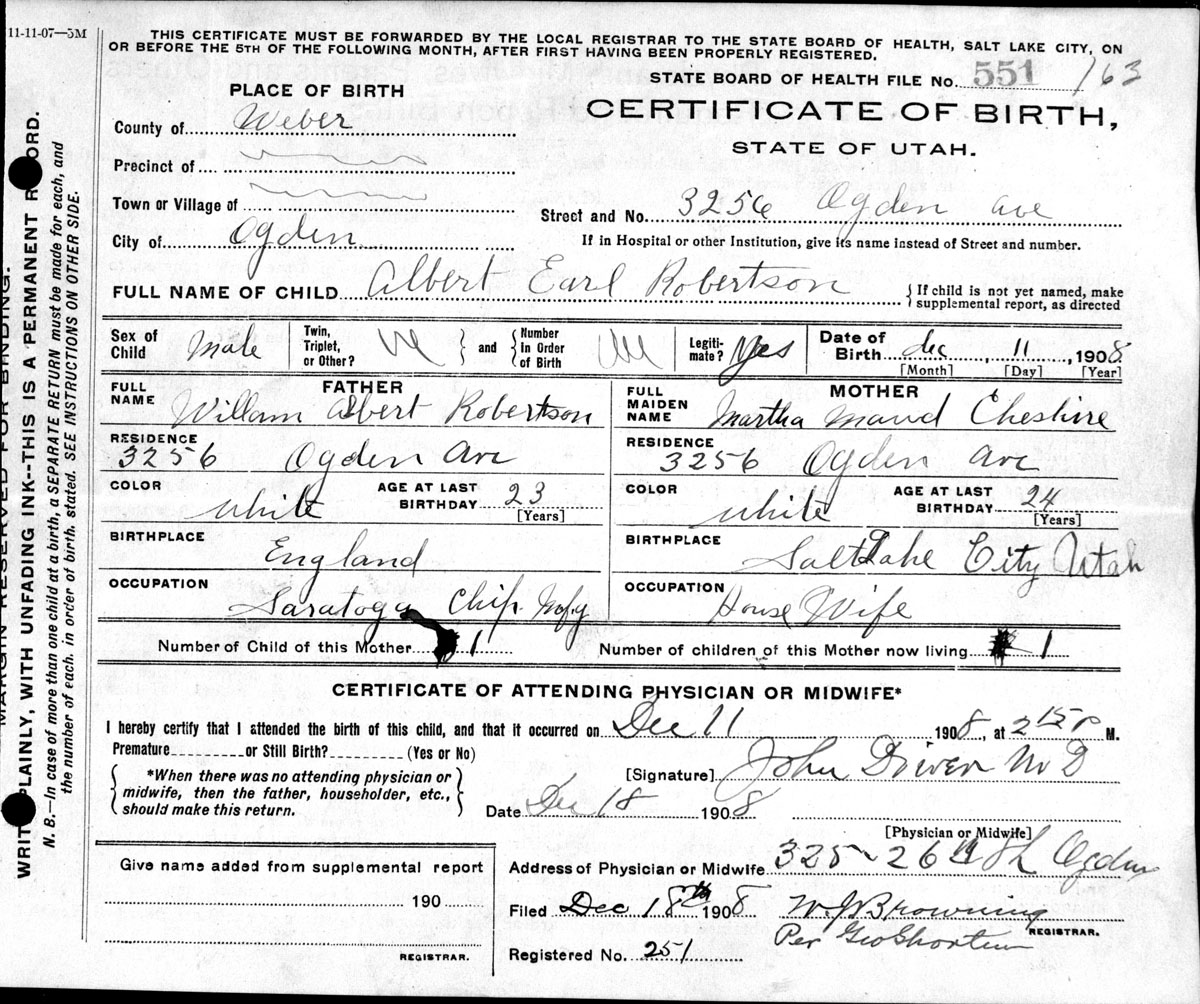 11-11-07—5M
THIS CERTIFICATE MUST BE FORWARDED BY THE LOCAL REGISTRAR TO THE STATE BOARD OF HEALTH, SALT LAKE CITY, ON
OR BEFORE THE 5TH OF THE FOLLOWING MONTH, AFTER FIRST HAVING BEEN PROPERLY REGISTERED.
STATE BOARD OF HEALTH FILE No. 551 /63
PLACE OF BIRTH
CERTIFICATE OF BIRTH,
STATE OF UTAH.
County of Weber
Precinct of
Town or Village of
Street and No. 3256 Ogden Ave
City of Ogden
If in Hospital or other Institution, give its name instead of Street and number.
FULL NAME OF CHILD Albert Earl Robertson
{ If child is not yet named, make
supplemental report, as directed
Sex of Child Male
Twin, Triplet, or Other? } and { Number In Order of Birth
Legiti-mate? Yes
Date of Birth Dec, 11, 1908
[Month] [Day] [Year]
FATHER
FULL NAME Willam Albert Robertson
MOTHER
FULL MAIDEN NAME Martha Maud Cheshire
RESIDENCE 3256 Ogden Ave
RESIDENCE 3256 Ogden Ave
COLOR White
AGE AT LAST BIRTHDAY 23 [Years]
COLOR White
AGE AT LAST BIRTHDAY 24 [Years]
BIRTHPLACE England
BIRTHPLACE Salt Lake City Utah
OCCUPATION Saratoga Chip Mnfg
OCCUPATION House Wife
Number of Child of this Mother 1
Number of children of this Mother now living 1
CERTIFICATE OF ATTENDING PHYSICIAN OR MIDWIFE*
I hereby certify that I attended the birth of this child, and that it occurred on Dec 11 1908, at 2 15 P M.
Premature or Still Birth? (Yes or No)
{ *When there was no attending physician or
midwife, then the father, householder, etc.,
should make this return. }
[Signature] John Driver M D
Date Dec 18 1908
[Physician or Midwife]
Give name added from supplemental report
Address of Physician or Midwife 325 26 th Ogden
190
Filed Dec 18th 1908
W. J. Browning
REGISTRAR.
Per Geo Shorten
REGISTRAR.
Registered No. 251
MARGIN RESERVED FOR BINDING.
WRITE PLAINLY, WITH UNFADING INK--THIS IS A PERMANENT RECORD.
N. B.—In case of more than one child at a birth, a SEPARATE RETURN must be made for each, and
the number of each, in order of birth, stated. SEE INSTRUCTIONS ON OTHER SIDE.